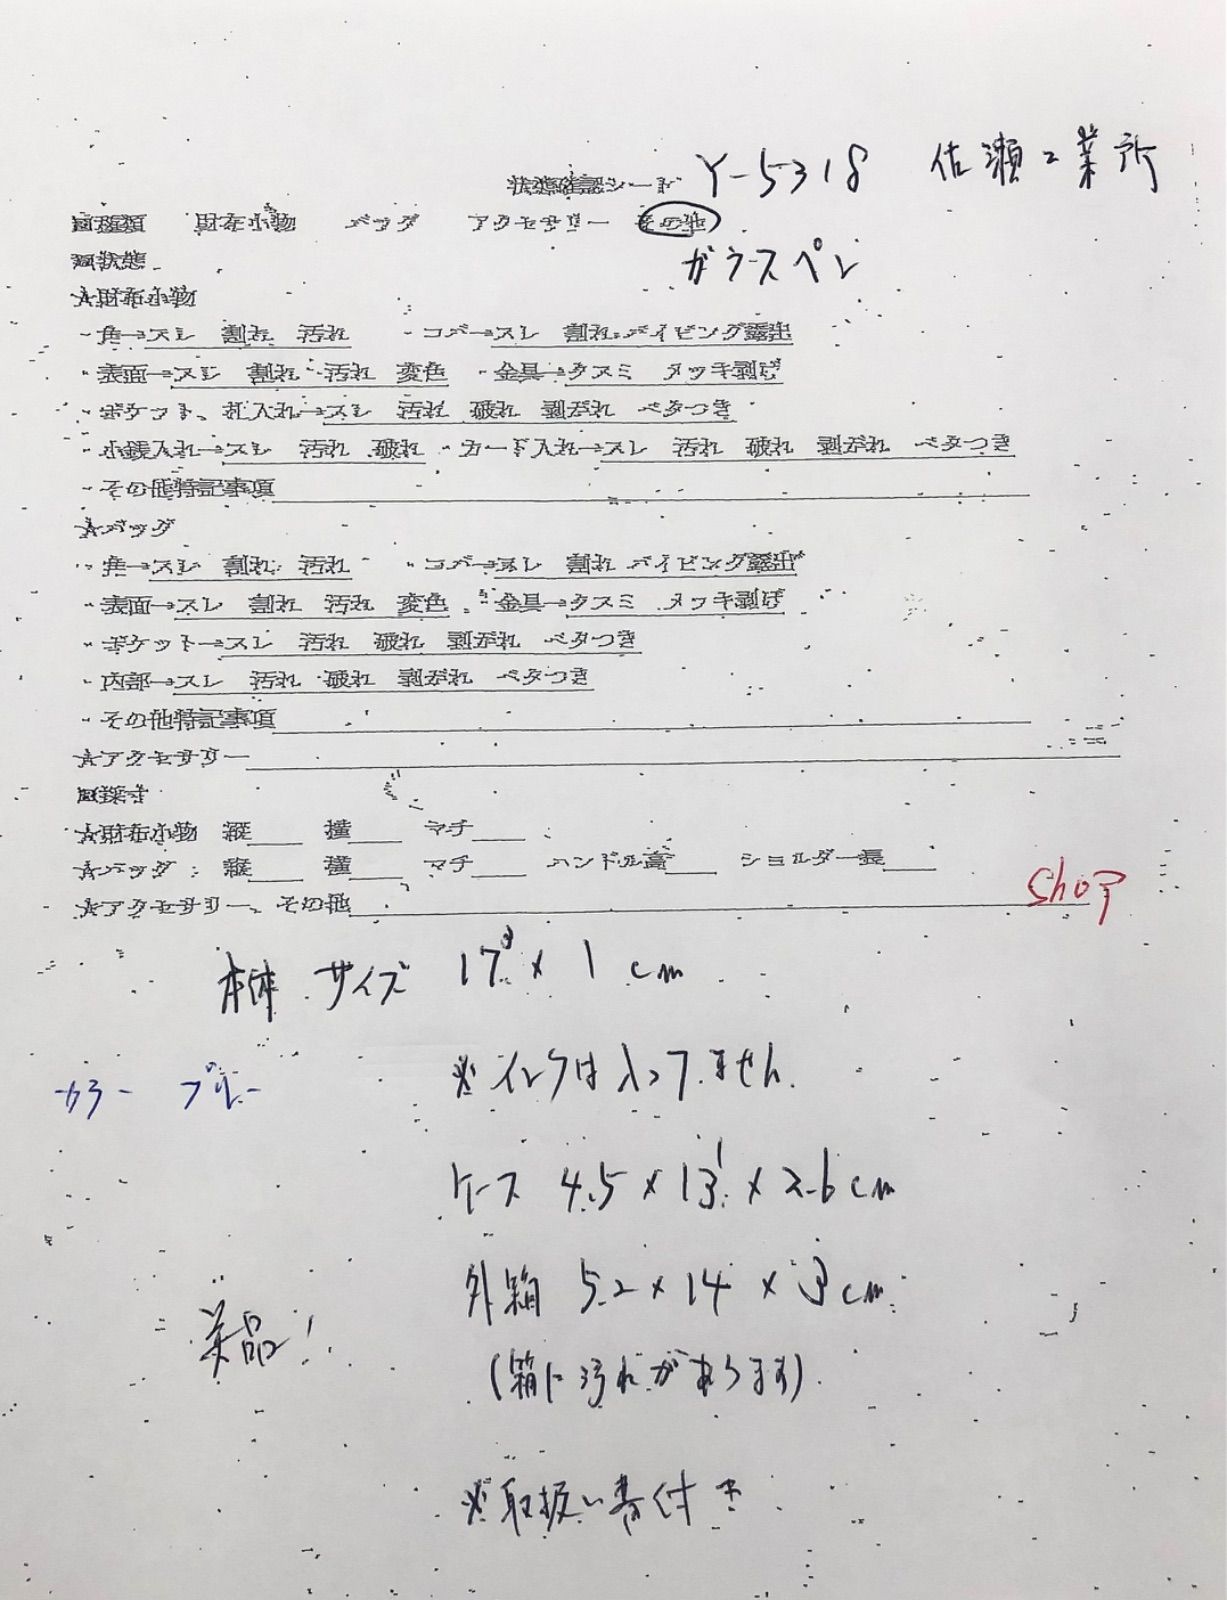 状態確認シート Y-5318 佐瀬工業所
□種類 財布小物 バッグ アクセサリー その他
ガラスペン
□状態
☆財布小物
・角→スレ 割れ 汚れ ・コバ→スレ 割れ パイピング露出
・表面→スレ 割れ 汚れ 変色 ・金具→クスミ メッキ剥げ
・ポケット、札入れ→スレ 汚れ 破れ 剥がれ ベタつき
・小銭入れ→スレ 汚れ 破れ ・カード入れ→スレ 汚れ 破れ 剥がれ ベタつき
・その他特記事項
☆バッグ
・角→スレ 割れ 汚れ ・コバ→スレ 割れ パイピング露出
・表面→スレ 割れ 汚れ 変色 ・金具→クスミ メッキ剥げ
・ポケット→スレ 汚れ 破れ 剥がれ ベタつき
・内部→スレ 汚れ 破れ 剥がれ ベタつき
・その他特記事項
☆アクセサリー
□採寸
☆財布小物 縦 横 マチ
☆バッグ 縦 横 マチ ハンドル高 ショルダー長
☆アクセサリー、その他
shop
本体 サイズ 17 × 1 cm
※インクは入ってません.
カラー ブルー
ケース 4.5 × 13 × 2.6 cm
外箱 5.2 × 14 × 3 cm
美品!
(箱に汚れがあります).
※取扱い書付き